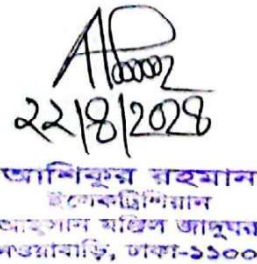 ২২|৪|২০২৪
আশিকুর রহমান
ইলেকট্রিশিয়ান
আহসান মঞ্জিল জাদুঘর
ঢাকা-১১০০